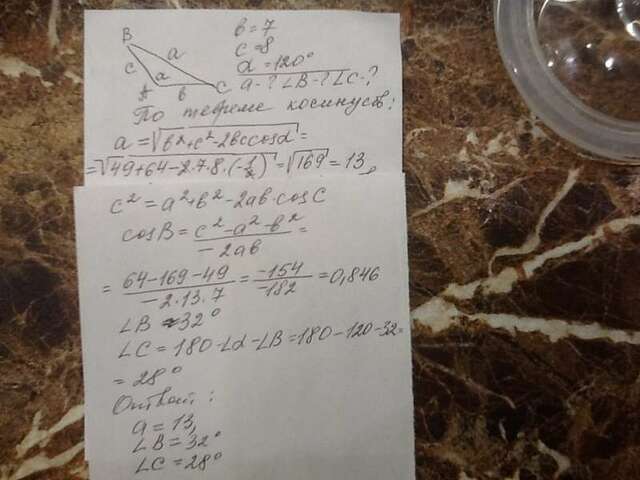 B a
c a
A b C
b = 7
c = 8
α = 120°
a - ? ∠B - ? ∠C - ?
По теореме косинусов:
a = √b² + c² - 2bccosα =
= √49 + 64 - 2·7·8·(-1/2) = √169 = 13,
c² = a² + b² - 2ab·cosC
cosB = (c² - a² - b²)/(-2ab) =
= (64 - 169 - 49)/(-2·13·7) = (-154)/(-182) = 0,846
∠B ≈ 32°
∠C = 180 - ∠α - ∠B = 180 - 120 - 32 =
= 28°
Ответ:
a = 13,
∠B = 32°
∠C = 28°